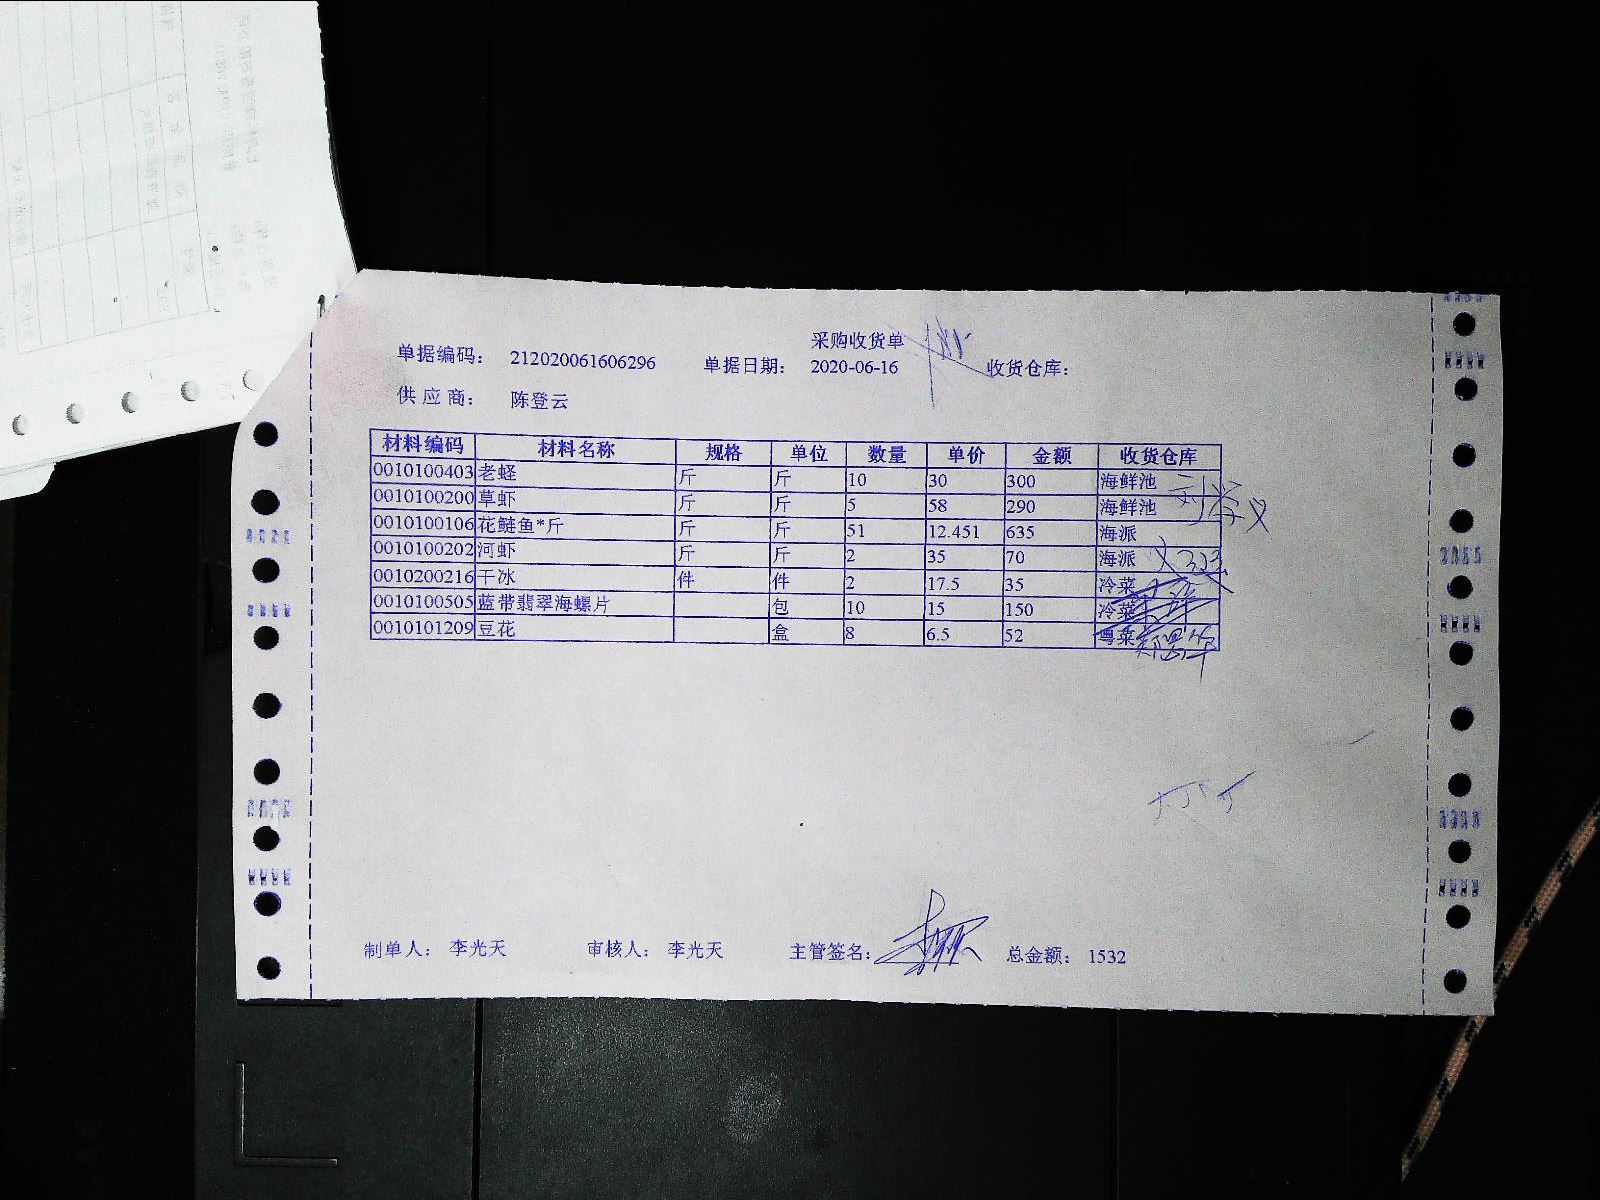 采购收货单
单据编码： 212020061606296 单据日期： 2020-06-16 收货仓库：
供 应 商： 陈登云
材料编码 材料名称 规格 单位 数量 单价 金额 收货仓库
0010100403 老蛏 斤 斤 10 30 300 海鲜池
0010100200 草虾 斤 斤 5 58 290 海鲜池
0010100106 花鲢鱼*斤 斤 斤 51 12.451 635 海派
0010100202 河虾 斤 斤 2 35 70 海派
0010200216 干冰 件 件 2 17.5 35 冷菜
0010100505 蓝带翡翠海螺片 包 10 15 150 冷菜
0010101209 豆花 盒 8 6.5 52 粤菜
制单人： 李光天 审核人： 李光天 主管签名： 总金额： 1532